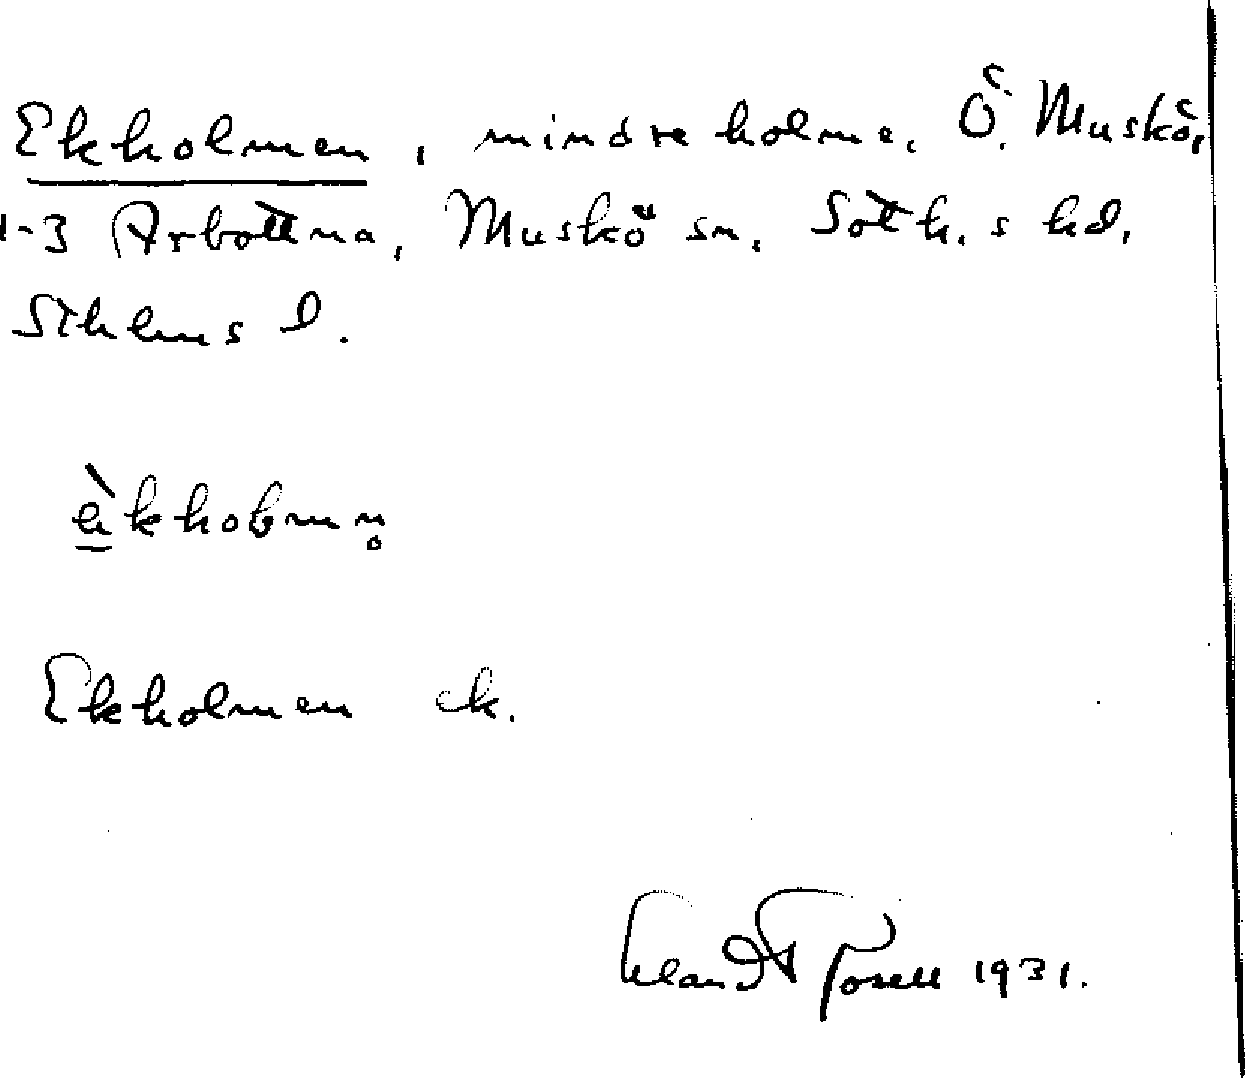 Ekholmen, mindre holme. Ö. Muskö,
1-3 Arbottna, Muskö sn. Soth.s hd,
Sthlms l.
Ekholmen ek.
Erland Rosell 1931.